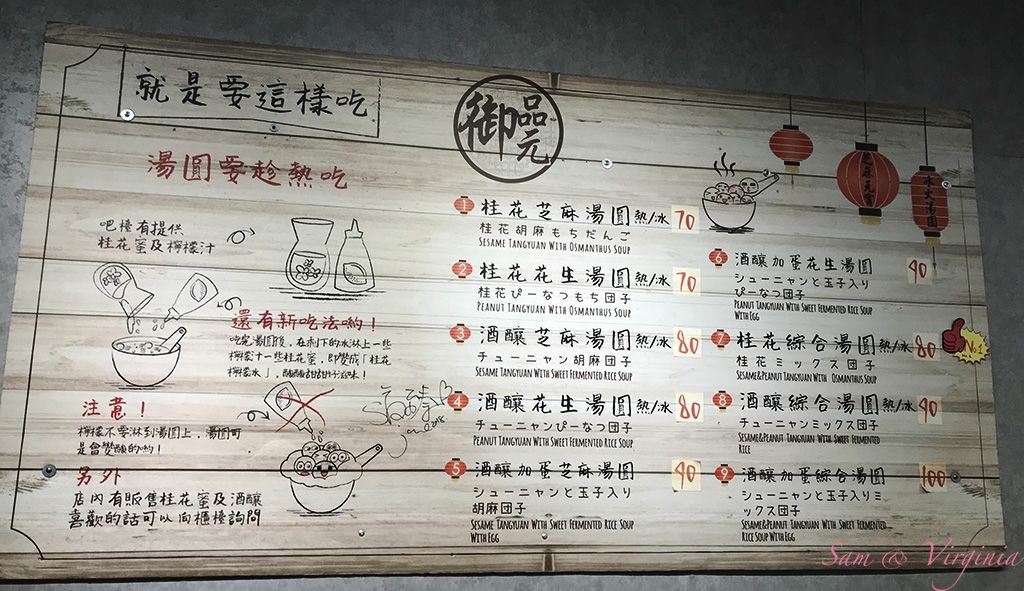 就是要這樣吃
御品元
湯圓要趁熱吃
吧檯有提供
桂花蜜及檸檬汁
還有新吃法喲！
吃完湯圓後，在剩下的冰淋上一些
檸檬汁一些桂花蜜，即變成「桂花
檸檬冰」，酸酸甜甜好滋味！
注意！
檸檬不要淋到湯圓上，湯圓可
是會變酸的喲！
另外
店內有販售桂花蜜及酒釀
喜歡的話可以向櫃檯詢問
1 桂花芝麻湯圓 熱/冰 70
桂花胡麻もちだんご
Sesame Tangyuan With Osmanthus Soup
2 桂花花生湯圓 熱/冰 70
桂花ぴーなつもち団子
Peanut Tangyuan With Osmanthus Soup
3 酒釀芝麻湯圓 熱/冰 80
チューニャン胡麻団子
Sesame Tangyuan With Sweet Fermented Rice Soup
4 酒釀花生湯圓 熱/冰 80
チューニャンぴーなつ団子
Peanut Tangyuan With Sweet Fermented Rice Soup
5 酒釀加蛋芝麻湯圓 90
シューニャンと玉子入り
胡麻団子
Sesame Tangyuan With Sweet Fermented Rice Soup
With Egg
6 酒釀加蛋花生湯圓 90
シューニャンと玉子入り
ぴーなつ団子
Peanut Tangyuan With Sweet Fermented Rice Soup
With Egg
7 桂花綜合湯圓 熱/冰 80
桂花ミックス団子
Sesame&Peanut Tangyuan With Osmanthus Soup
8 酒釀綜合湯圓 熱/冰 90
チューニャンミックス団子
Sesame&Peanut Tangyuan With Sweet Fermented
Rice
9 酒釀加蛋綜合湯圓 100
シューニャンと玉子入りミ
ックス団子
Sesame&Peanut Tangyuan With Sweet Fermented
Rice Soup With Egg
Sam & Virginia